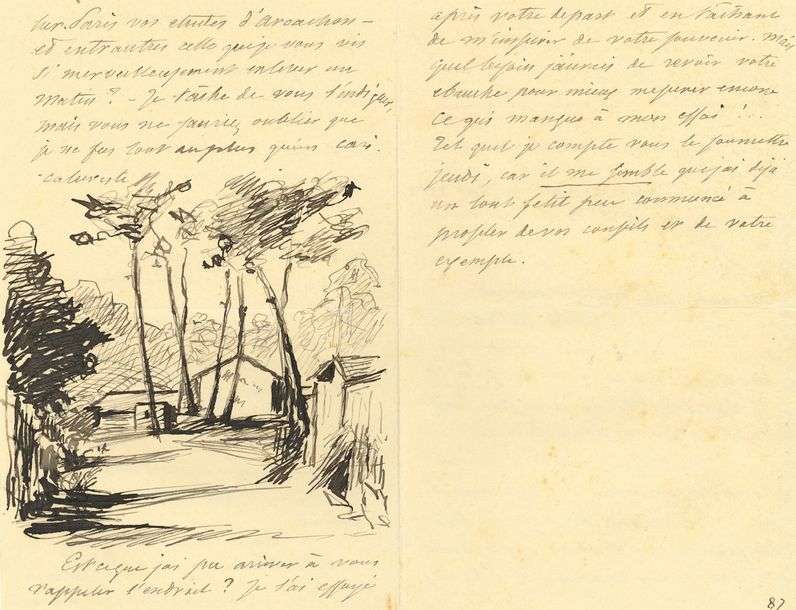 sur Paris vos etudes d'Arcachon –
et entr'autres celle que je vous vis
si merveilleusement enlever un
matin ? – Je tâche de vous l'indiquer,
mais vous ne sauriez oublier que
je ne fus tout au plus qu'un cari-
caturiste
Est ce que j'ai pu arriver à vous
rappeler l'endroit ? Je l'ai essayé
après votre depart et en tâchant
de m'inspirer de votre souvenir. Mais
quel besoin j'aurais de revoir votre
ebauche pour mieux mesurer encore
ce qui manque à mon essai !..
Tel quel je compte vous le soumettre
jeudi, car il me semble que j'ai déjà
un tout petit peu commencé à
profiter de vos conseils et de votre
exemple.
87